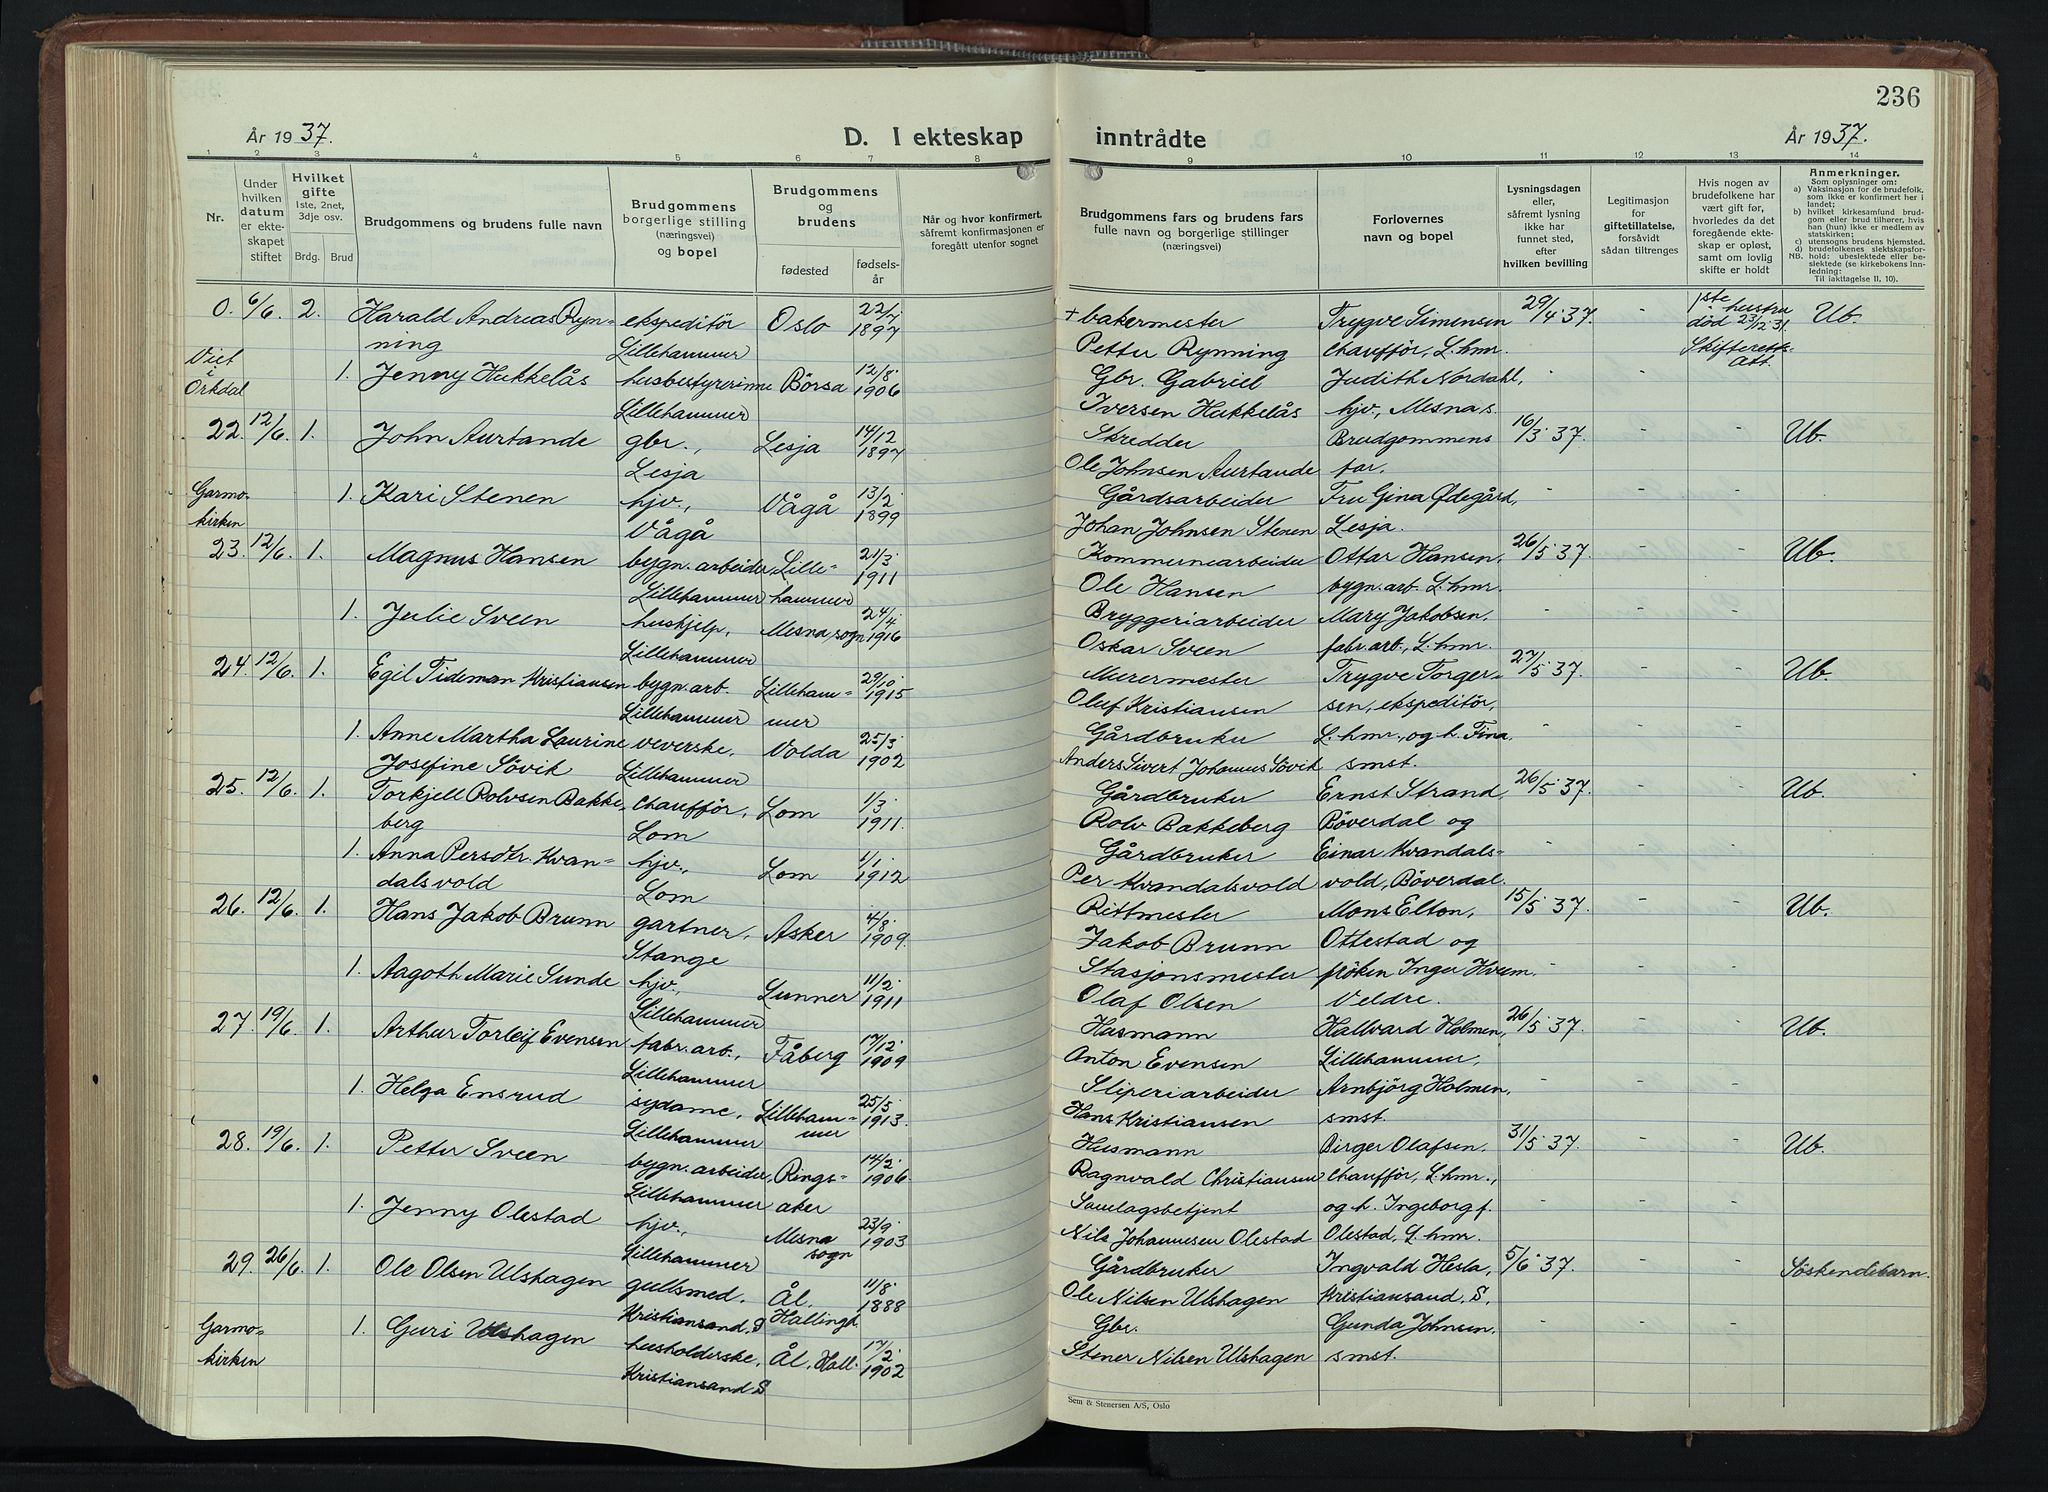 236
År 1937.
D. I ekteskap inntrådte
År 1937.
1 2 3 4 5 6 7 8 9 10 11 12 13 14
Nr.
Under hvilken datum er ekteskapet stiftet
Hvilket gifte 1ste, 2net, 3dje osv.
Brdg. Brud
Brudgommens og brudens fulle navn
Brudgommens borgerlige stilling (næringsvei) og bopel
Brudgommens og brudens
fødested
fødselsår
Når og hvor konfirmert, såfremt konfirmasjonen er foregått utenfor sognet
Brudgommens fars og brudens fars fulle navn og borgerlige stillinger (næringsvei)
Forlovernes navn og bopel
Lysningsdagen eller, såfremt lysning ikke har funnet sted, efter hvilken bevilling
Legitimasjon for giftetillatelse, forsåvidt sådan tiltrenges
Hvis nogen av brudefolkene har vært gift før, hvorledes da det foregående ekteskap er opløst, samt om lovlig skifte er holdt
Anmerkninger.
Som oplysninger om:
a) Vaksinasjon for de brudefolk, som ikke er konfirmert her i landet;
b) hvilket kirkesamfund brudgom eller brud tilhører, hvis han (hun) ikke er medlem av statskirken;
c) utensogns brudens hjemsted.
d) brudefolkenes slektskapsforhold: ubeslektede eller beslektede (se kirkebokens innledning:
NB. Til iakttagelse II, 10).
0. 6/6. 2. Harald Andreas Rynning ekspeditör Lillehammer Oslo 22/7 1897 + bakermester Petter Rynning Trygve Simensen chauffför, L.hmr. 29/4 37. - 1ste hustru död 23/12 31. Skifterettsatt. Ub.
Viet i Orkdal 1. Jenny Hukkelås husbestyrerinne Lillehammer Börsa 12/8 1906 Gbr. Gabriel Iversen Hukkelås Judith Nordahl, hjv., Mesna s.
22. 12/6. 1. John Aurtande gbr., Lesja Lesja 14/12 1897 Skredder Ole Johnsen Aurtande Brudgommens far. 16/3 37. - - Ub.
Garmokirken 1. Kari Stenen hjv., Vågå Vågå 13/2 1899 Gårdsarbeider Johan Johnsen Stenen Fru Gina Ødegård, Lesja. - - -
23. 12/6. 1. Magnus Hansen bygn.arbeider, Lillehammer Lillehammer 21/3 1911 Kommunearbeider Ole Hansen Ottar Hansen, bygn.arb. L.hmr. 26/5 37. - - Ub.
1. Julie Sveen huskjelp, Lillehammer Mesna sogn 24/4 1916 Bryggeriarbeider Oskar Sveen Mary Jakobsen, fabr.arb., L.hmr. - - -
24. 12/6. 1. Egil Tideman Kristiansen bygn.arb. Lillehammer Lillehammer 29/10 1915 Murermester Oluf Kristiansen Trygve Torgersen, ekspeditör, 27/5 37. - - Ub.
1. Anne Martha Laurine Josefine Sövik veverske, Lillehammer Volda 25/3 1902 Gårdbruker Anders Sivert Johannes Sövik L.hmr., og h. Fina, smst. - - -
25. 12/6. 1. Torkjell Rolvsen Bakkeberg chauffför, Lom Lom 1/3 1911. Gårdbruker Rolv Bakkeberg Ernst Strand, Böverdal og 26/5 37. - - Ub.
1. Anna Persdtr. Kvandalsvold hjv., Lom Lom 1/1 1912 Gårdbruker Per Kvandalsvold Einar Kvandalsvold, Böverdal. - - -
26. 12/6. 1. Hans Jakob Brunn gartner, Stange Asker 4/8 1909. Rittmester Jakob Brunn Mons Elton, Ottestad og 15/5 37. - - Ub.
1. Aagoth Marie Sunde hjv., Lillehammer Lunner 11/2 1911 Stasjonsmester Olaf Olsen fröken Inger Hvem Veldre. - - -
27. 19/6. 1. Arthur Torleif Evensen fabr.arb., Lillehammer Fåberg 17/12 1909 Husmann Anton Evensen Hallvard Holmen, Lillehammer, 26/5 37. - - Ub.
1. Helga Ensrud sydame, Lillehammer Lillehammer 25/5 1913. Sliperiarbeider Hans Kristiansen Arnbjörg Holmen, smst. - - -
28. 19/6. 1. Petter Sveen bygn.arbeider, Lillehammer Ringsaker 14/2 1906. Husmann Ragnvald Christiansen Birger Olafsen, chauffför, L.hmr., 31/5 37. - - Ub.
1. Jenny Olestad hjv., Lillehammer Mesna sogn 23/9 1903 Samlagsbetjent Nils Johannesen Olestad og h. Ingeborg f. Olestad, L.hmr. - - -
29. 26/6. 1. Ole Olsen Ulshagen gullsmed, Kristiansand, S Ål. Hallingd. 11/8 1888 Gårdbruker Ole Nilsen Ulshagen Ingvald Hesla, Kristiansand, S. 5/6 37. - - Söskendebarn.
Garmokirken 1. Guri Ulshagen husholderske, Kristiansand S Ål, Hall. 17/2 1902 Gbr. Stener Nilsen Ulshagen Gunda Johnsen, smst.
Sem & Stenersen A/S, Oslo